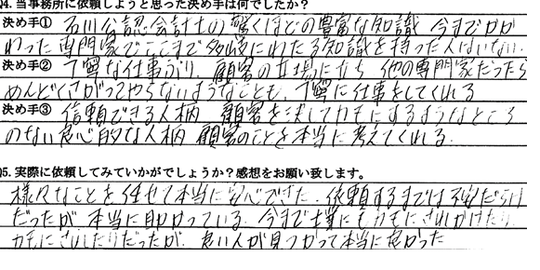 4. 当事務所に依頼しようと思った決め手は何でしたか?
決め手① 石川公認会計士の驚くほどの豊富な知識 今までかか
わった専門家でここまで多岐にわたる知識を持った人はいない.
決め手② 丁寧な仕事ぶり. 顧客の立場に立ち 他の専門家だったら
めんどくさがってやらないようなことも、丁寧に仕事をしてくれる
決め手③ 信頼できる人柄 顧客を決してカモにするようなところ
のない良心的な人柄 顧客のことを本当に考えてくれる.
5. 実際に依頼してみていかがでしょうか?感想をお願い致します。
様々なことを任せて本当に安心できた. 依頼するまでは不安だらけ
だったが 本当に助かっている. 今まで士業にもカモにされかけたり、
カモにされたりだったが. 良い人が見つかって本当に良かった